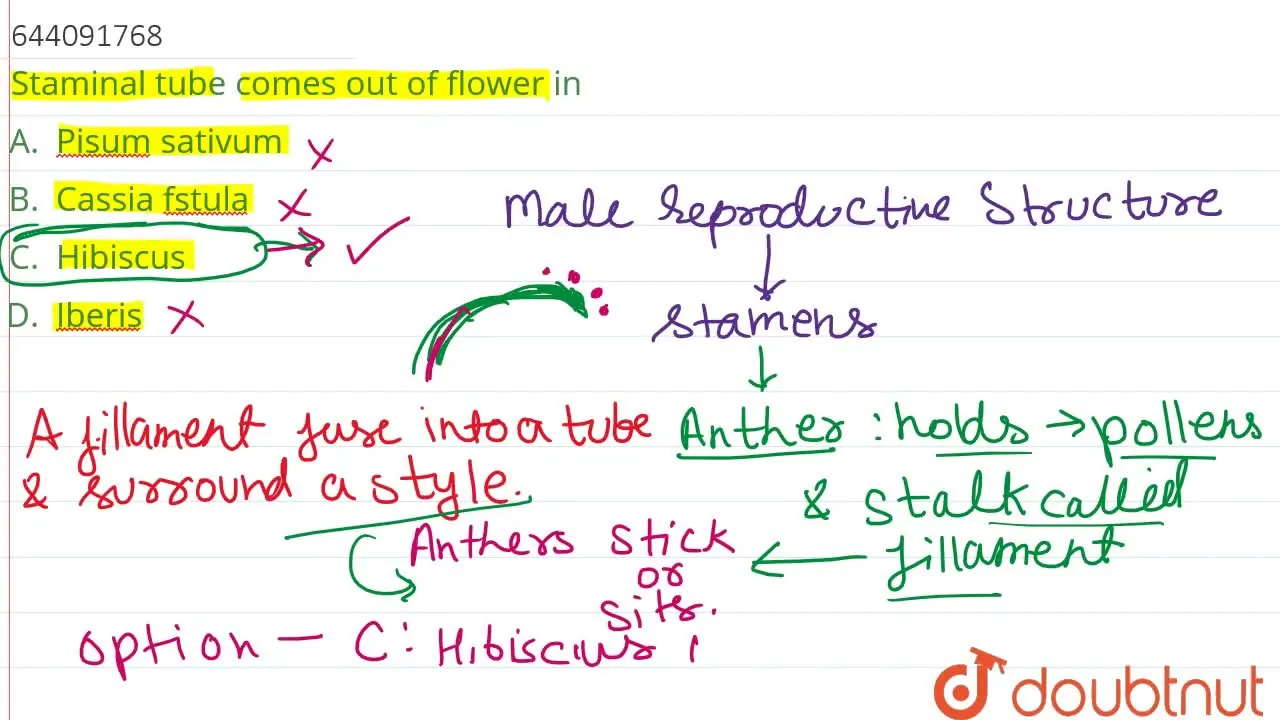 644091768
Staminal tube comes out of flower in
A. Pisum sativum x
B. Cassia fstula x
C. Hibiscus
D. Iberis x
Male reproductive Structure
stamens
A fillament fuse into a tube
& surround a style.
Anther : holds → pollens
& stalk called
fillament
Anthers stick
or
sits.
option – C: Hibiscius
doubtnut